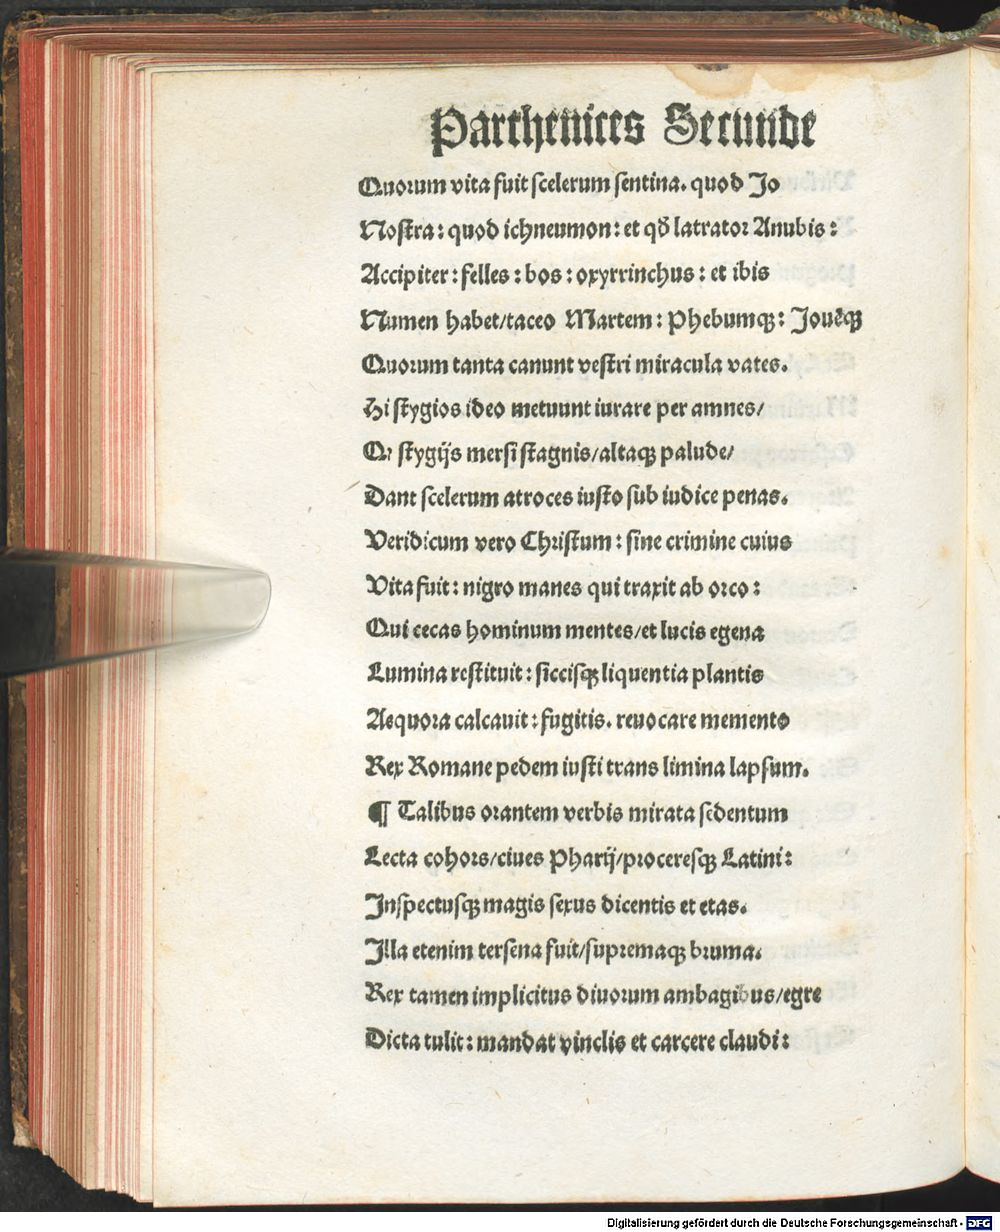 Parthenices Secunde
Quorum vita fuit scelerum sentina. quod Jo
Nostra: quod ichneumon: et qđ latrator Anubis:
Accipiter: felles: bos: oxyrrinchus: et ibis
Numen habet/taceo Martem: Phebumqꝫ: Jouēqꝫ
Quorum tanta canunt vestri miracula vates.
Hi stygios ideo metuunt iurare per amnes/
Qꝛ stygijs mersi stagnis/altaqꝫ palude/
Dant scelerum atroces iusto sub iudice penas.
Veridicum vero Christum: sine crimine cuius
Vita fuit: nigro manes qui traxit ab orco:
Qui cecas hominum mentes/et lucis egena
Lumina restituit: siccisqꝫ liquentia plantis
Aequora calcauit: fugitis. reuocare memento
Rex Romane pedem iusti trans limina lapsum.
¶ Talibus orantem verbis mirata sedentum
Lecta cohors/ciues Pharij/proceresqꝫ Latini:
Inspectusqꝫ magis sexus dicentis et etas.
Illa etenim tersena fuit/supremaqꝫ bruma.
Rex tamen implicitus diuorum ambagibus/egre
Dicta tulit: mandat vinclis et carcere claudi:
Digitalisierung gefördert durch die Deutsche Forschungsgemeinschaft - DFG